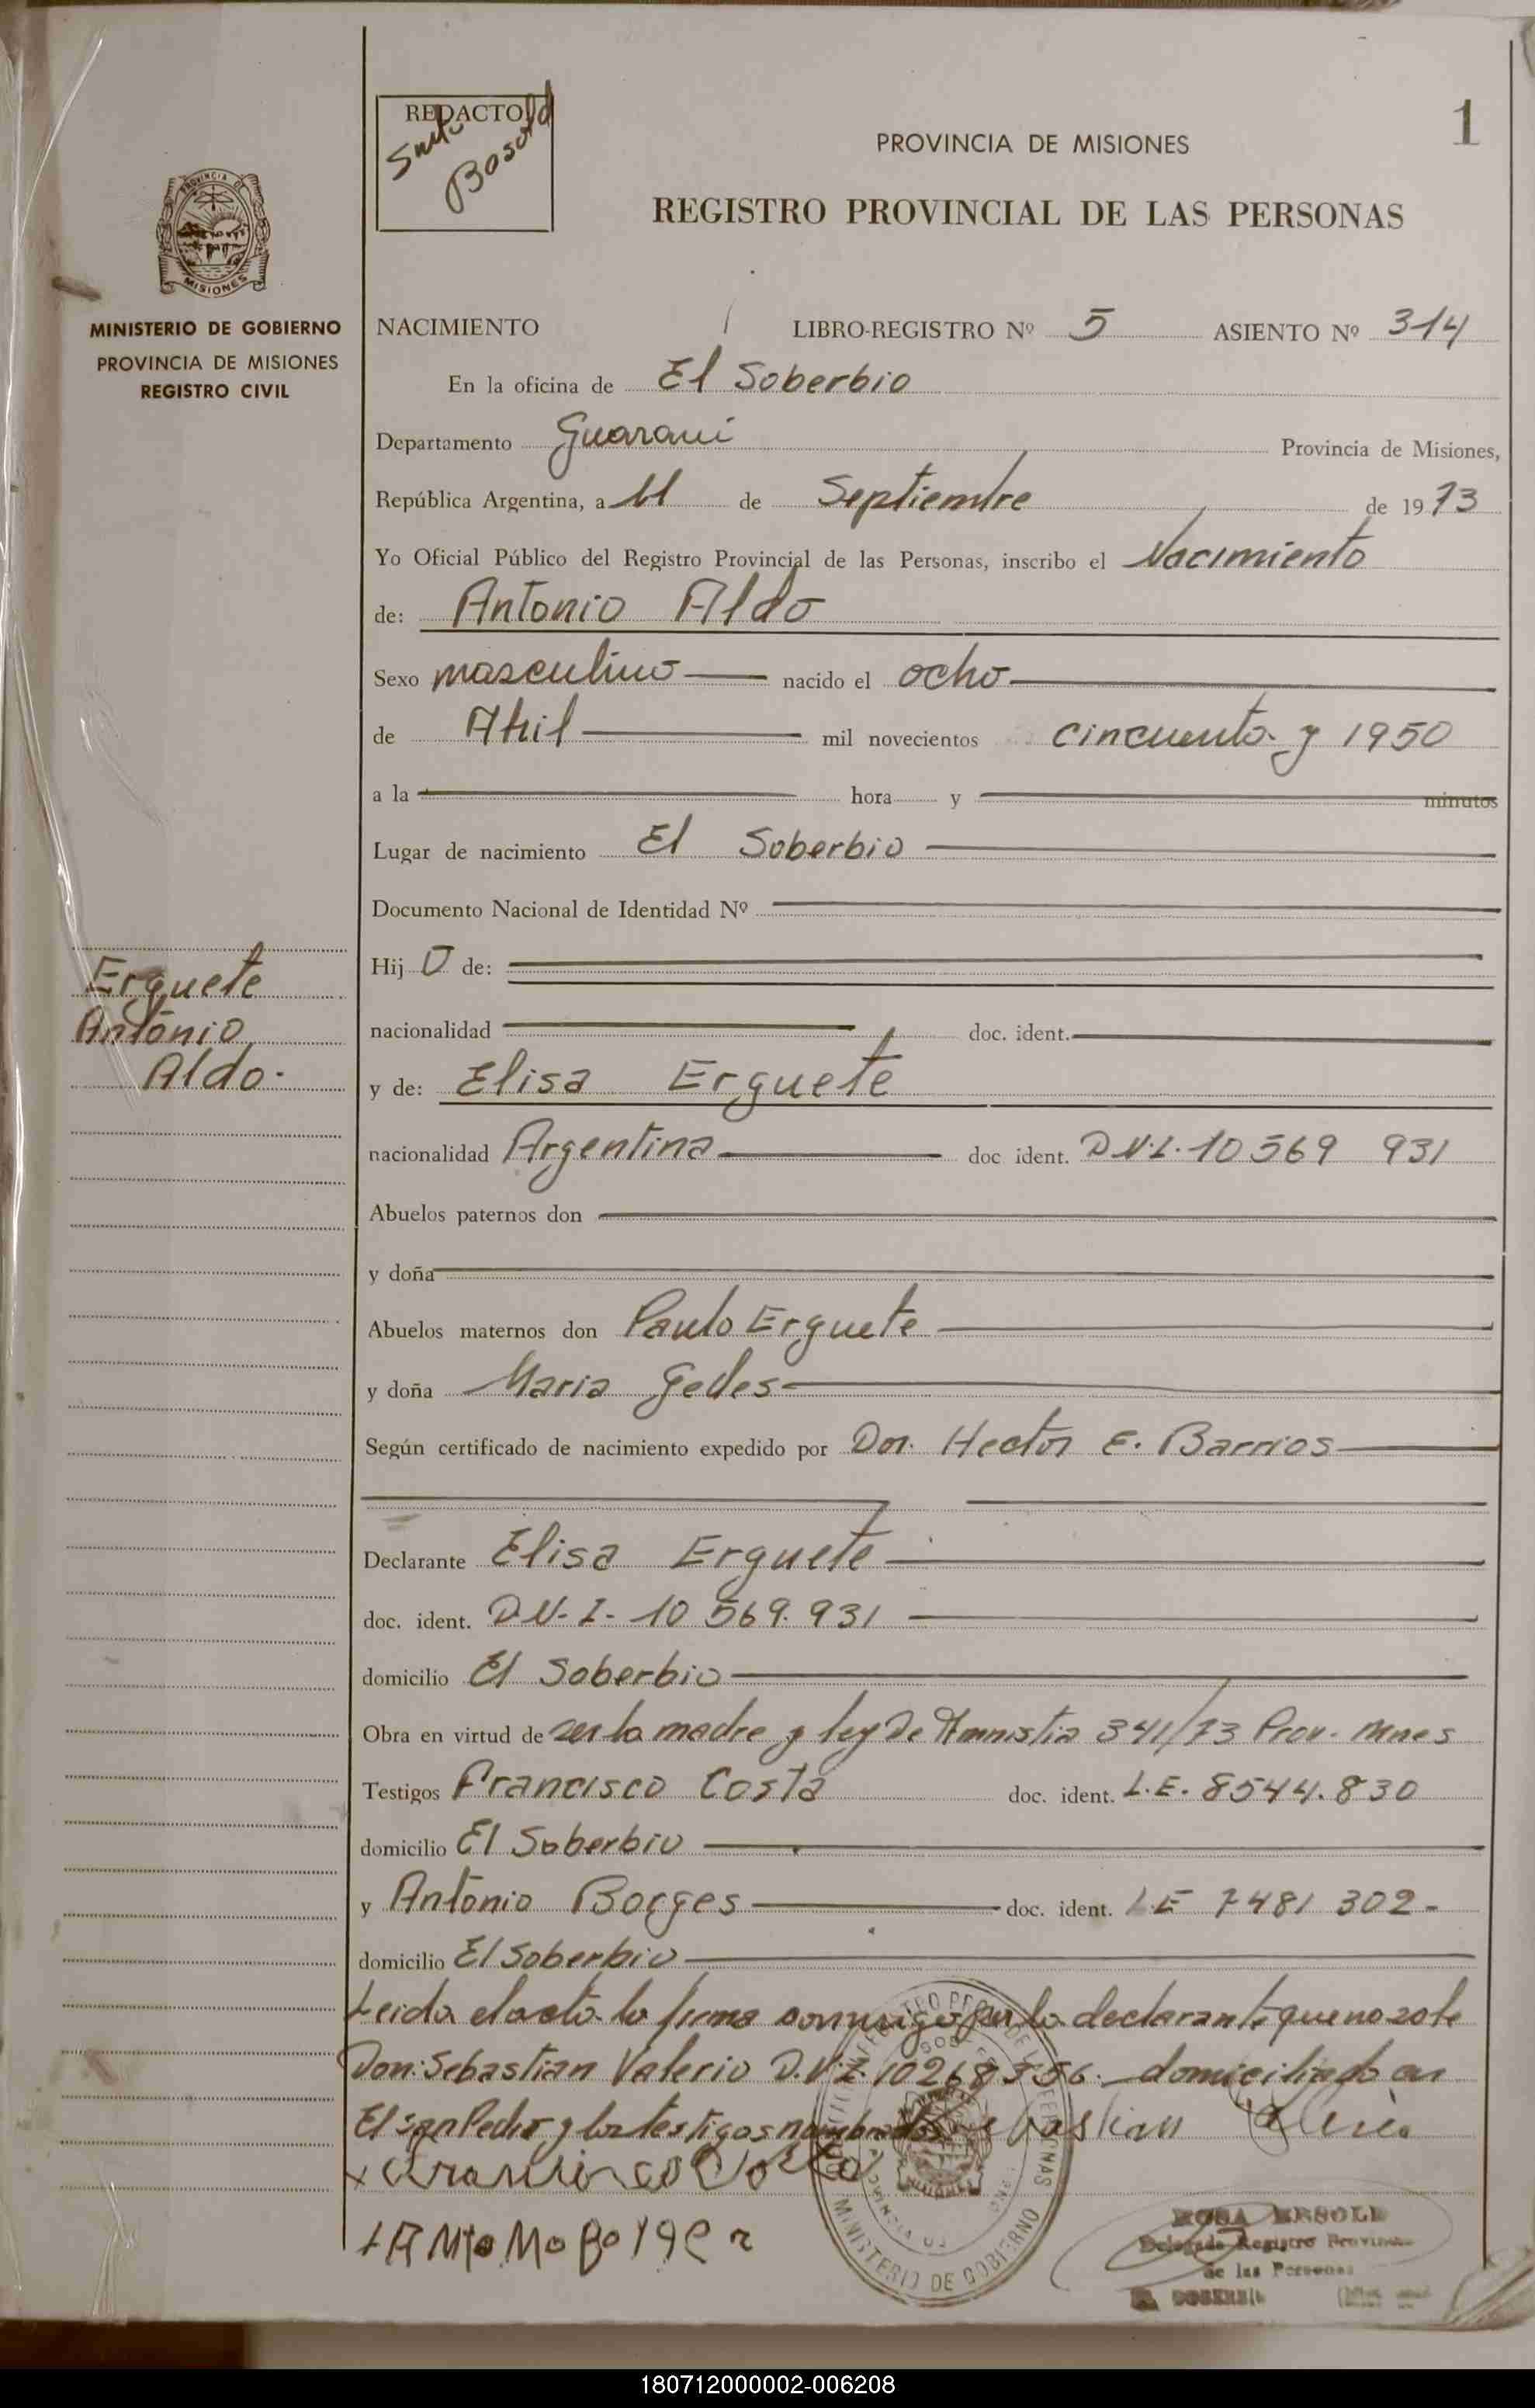 REDACTO
1
PROVINCIA DE MISIONES
REGISTRO PROVINCIAL DE LAS PERSONAS
PROVINCIA DE
MISIONES
MINISTERIO DE GOBIERNO
PROVINCIA DE MISIONES
REGISTRO CIVIL
NACIMIENTO LIBRO-REGISTRO Nº 5 ASIENTO Nº 314
En la oficina de El Soberbio
Departamento Guarani Provincia de Misiones,
República Argentina, a 11 de Septiembre de 1973
Yo Oficial Público del Registro Provincial de las Personas, inscribo el Nacimiento
de: Antonio Aldo
Sexo masculino nacido el ocho
de Abril mil novecientos cincuenta y 1950
a la hora y minutos
Lugar de nacimiento El Soberbio
Documento Nacional de Identidad Nº
Hij o de:
Erguete
Antonio
Aldo.
nacionalidad doc. ident.
y de: Elisa Erguete
nacionalidad Argentina doc ident. D.N.I. 10 569 931
Abuelos paternos don
y doña
Abuelos maternos don Paulo Erguete
y doña Maria Gedes
Según certificado de nacimiento expedido por Don. Hector E. Barrios
Declarante Elisa Erguete
doc. ident. D.N.I. 10 569.931
domicilio El Soberbio
Obra en virtud de ser la madre y ley De Amnistia 341/73 Prov. Mnes
Testigos Francisco Costa doc. ident. L.E. 8544.830
domicilio El Soberbio
y Antonio Borges doc. ident. L E 7481 302.
domicilio El Soberbio
Leida el acta la firma conmigo por la declarante que no sabe
Don: Sebastian Valerio D.N.I. domiciliado en
El San Pedro y los testigos nombrados
MINISTERIO DE GOBIERNO
Delegada Registro Provincial
de las Personas
180712000002-006208